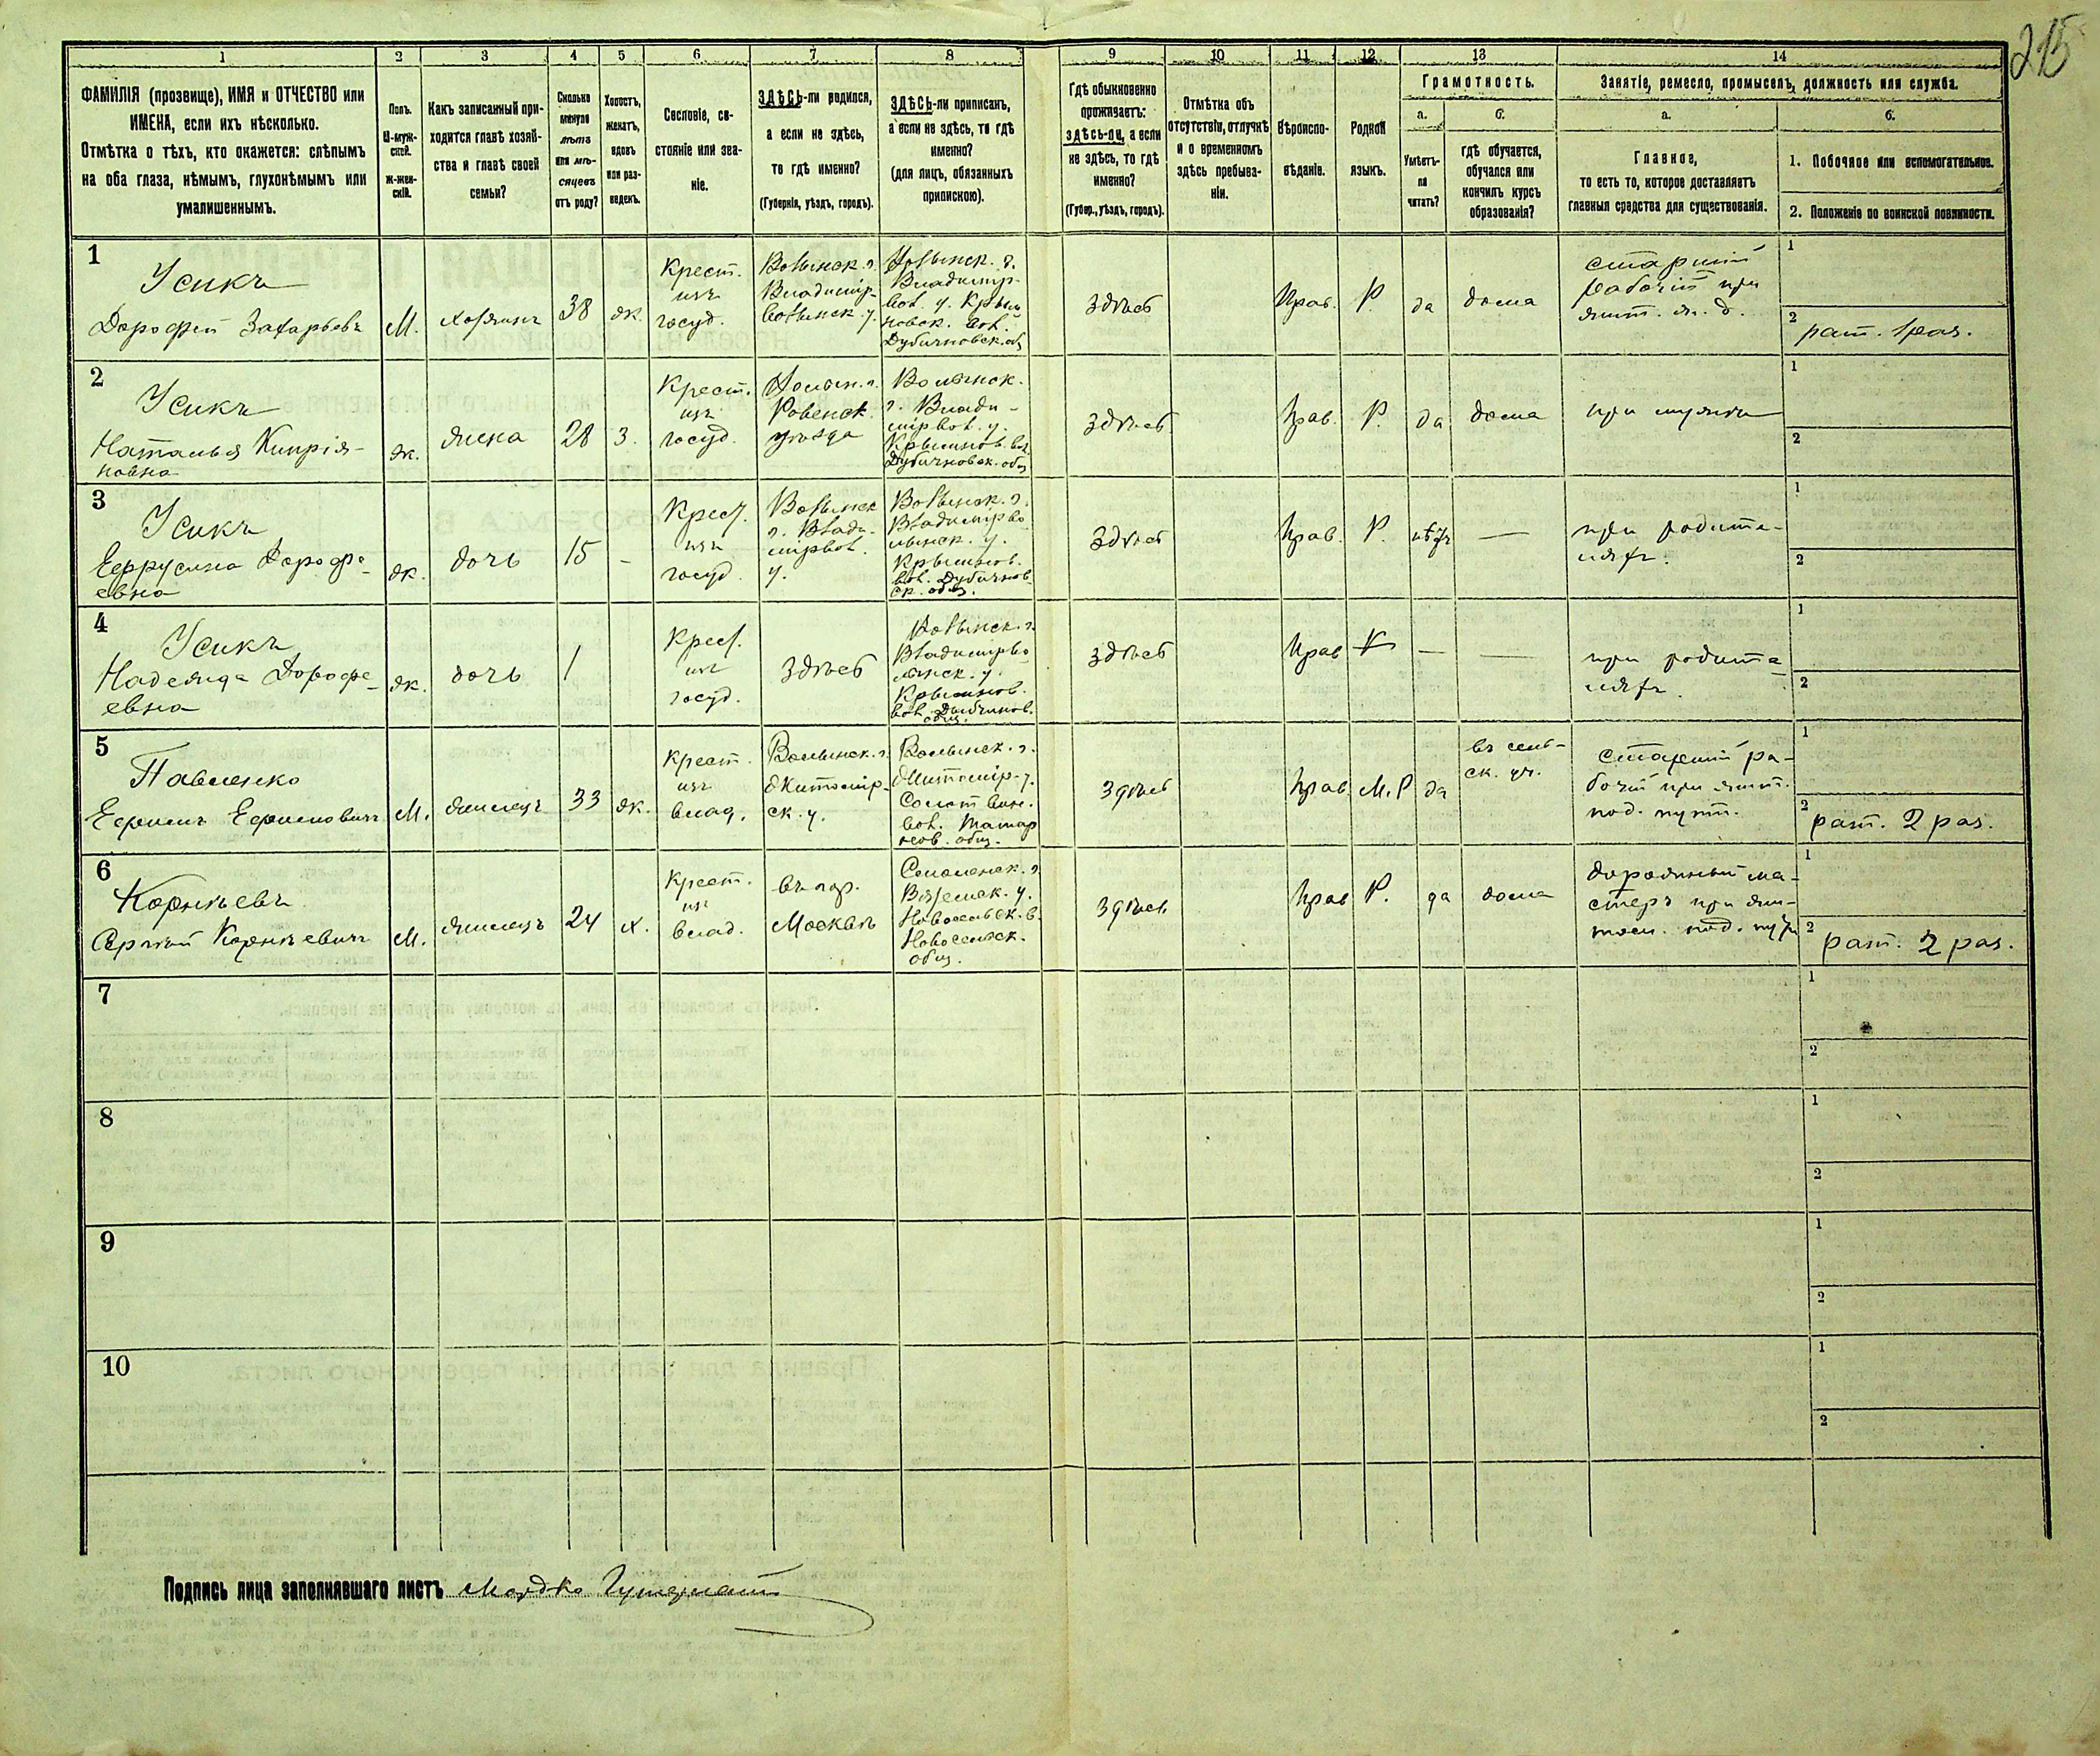 215
1 2 3 4 5 6 7 8 9 10 11 12 13 14
ФАМИЛІЯ (прозвище), ИМЯ и ОТЧЕСТВО или
ИМЕНА, если ихъ нѣсколько.
Отмѣтка о тѣхъ, кто окажется: слѣпымъ
на оба глаза, нѣмымъ, глухонѣмымъ или
умалишеннымъ.
Полъ.
М-муж-
ской.
Ж-жен-
скій.
Какъ записанный при-
ходится главѣ хозяй-
ства и главѣ своей
семьи?
Сколько
минуло
лѣтъ
или мѣ-
сяцевъ
отъ роду?
Холостъ,
женатъ,
вдовъ
или раз-
веденъ.
Сословіе, со-
стояніе или зва-
ніе.
ЗДѢСЬ-ли родился,
а если не здѣсь,
то гдѣ именно?
(Губернія, уѣздъ, городъ).
ЗДѢСЬ-ли приписанъ,
а если не здѣсь, то гдѣ
именно?
(для лицъ, обязанныхъ
припискою).
Гдѣ обыкновенно
проживаетъ:
здѣсь-ли, а если
не здѣсь, то гдѣ
именно?
(Губер., уѣздъ, городъ).
Отмѣтка объ
отсутствіи, отлучкѣ
и о временномъ
здѣсь пребыва-
ніи.
Вѣроиспо-
вѣданіе.
Родной
языкъ.
Грамотность.
а.
Умѣетъ-
ли
читать?
б.
гдѣ обучается,
обучался или
кончилъ курсъ
образованія?
Занятіе, ремесло, промыселъ, должность или служба.
а.
Главное,
то есть то, которое доставляетъ
главныя средства для существованія.
б.
1. Побочное или вспомогательное.
2. Положеніе по воинской повинности.
1
Усикъ
Дорофей Захарьевъ
М.
хозяинъ
38
ж.
Крест.
изъ
госуд.
Волынск. г.
Владимір-
волынск. у.
Волынск. г.
Владимір-
вол. у.
здѣсь
Прав.
Р.
да
дома
старшій
рабочій при
1
2
рат. 1 раз.
2
Усикъ
Наталья Кипрія-
новна
ж.
жена
28
З.
Крест.
изъ
госуд.
Волын. г.
Ровенск.
уѣзда
Волынск.
г. Влади-
мірвол. у.
здѣсь
Прав.
Р.
да
дома
при мужѣ
1
2
3
Усикъ
Еффусина Дорофе-
евна
ж.
дочь
15
-
Крест.
изъ
госуд.
Волынск
г. Влади-
мірвол.
у.
Волынск. г.
Владимірво
лынск. у.
здѣсь
Прав.
Р.
нѣтъ
—
при родите-
ляхъ.
1
2
4
Усикъ
Надежда Дорофе-
евна
ж.
дочь
1
Крест.
изъ
госуд.
здѣсь
Волынск. г.
Владимірво
лынск. у.
здѣсь
Прав
Р
—
—
при родите-
ляхъ.
1
2
5
Павленко
Ефимъ Ефимовичъ
М.
жилецъ
33
ж.
Крест.
изъ
влад.
Волынск. г.
Житомір-
ск. у.
Волынск. г.
Житомір. у.
здѣсь
Прав.
М.Р
да
въ сель-
ск. уч.
старшій ра-
бочій при жит.
под. пути.
1
2
рат. 2 раз.
6
Корнѣевъ
Сергѣй Корнѣевичъ
М.
жилецъ
24
х.
Крест.
изъ
влад.
въ гор.
Москвѣ
Смоленск. г.
Вяземск. у.
Новосельск. в.
Новосельск.
общ.
здѣсь
Прав
Р.
да
дома
дорожный ма-
стеръ при жи-
том. под. пути
1
2
рат. 2 раз.
7
1
2
8
1
2
9
1
2
10
1
2
Подпись лица заполнявшаго листъ Мордко